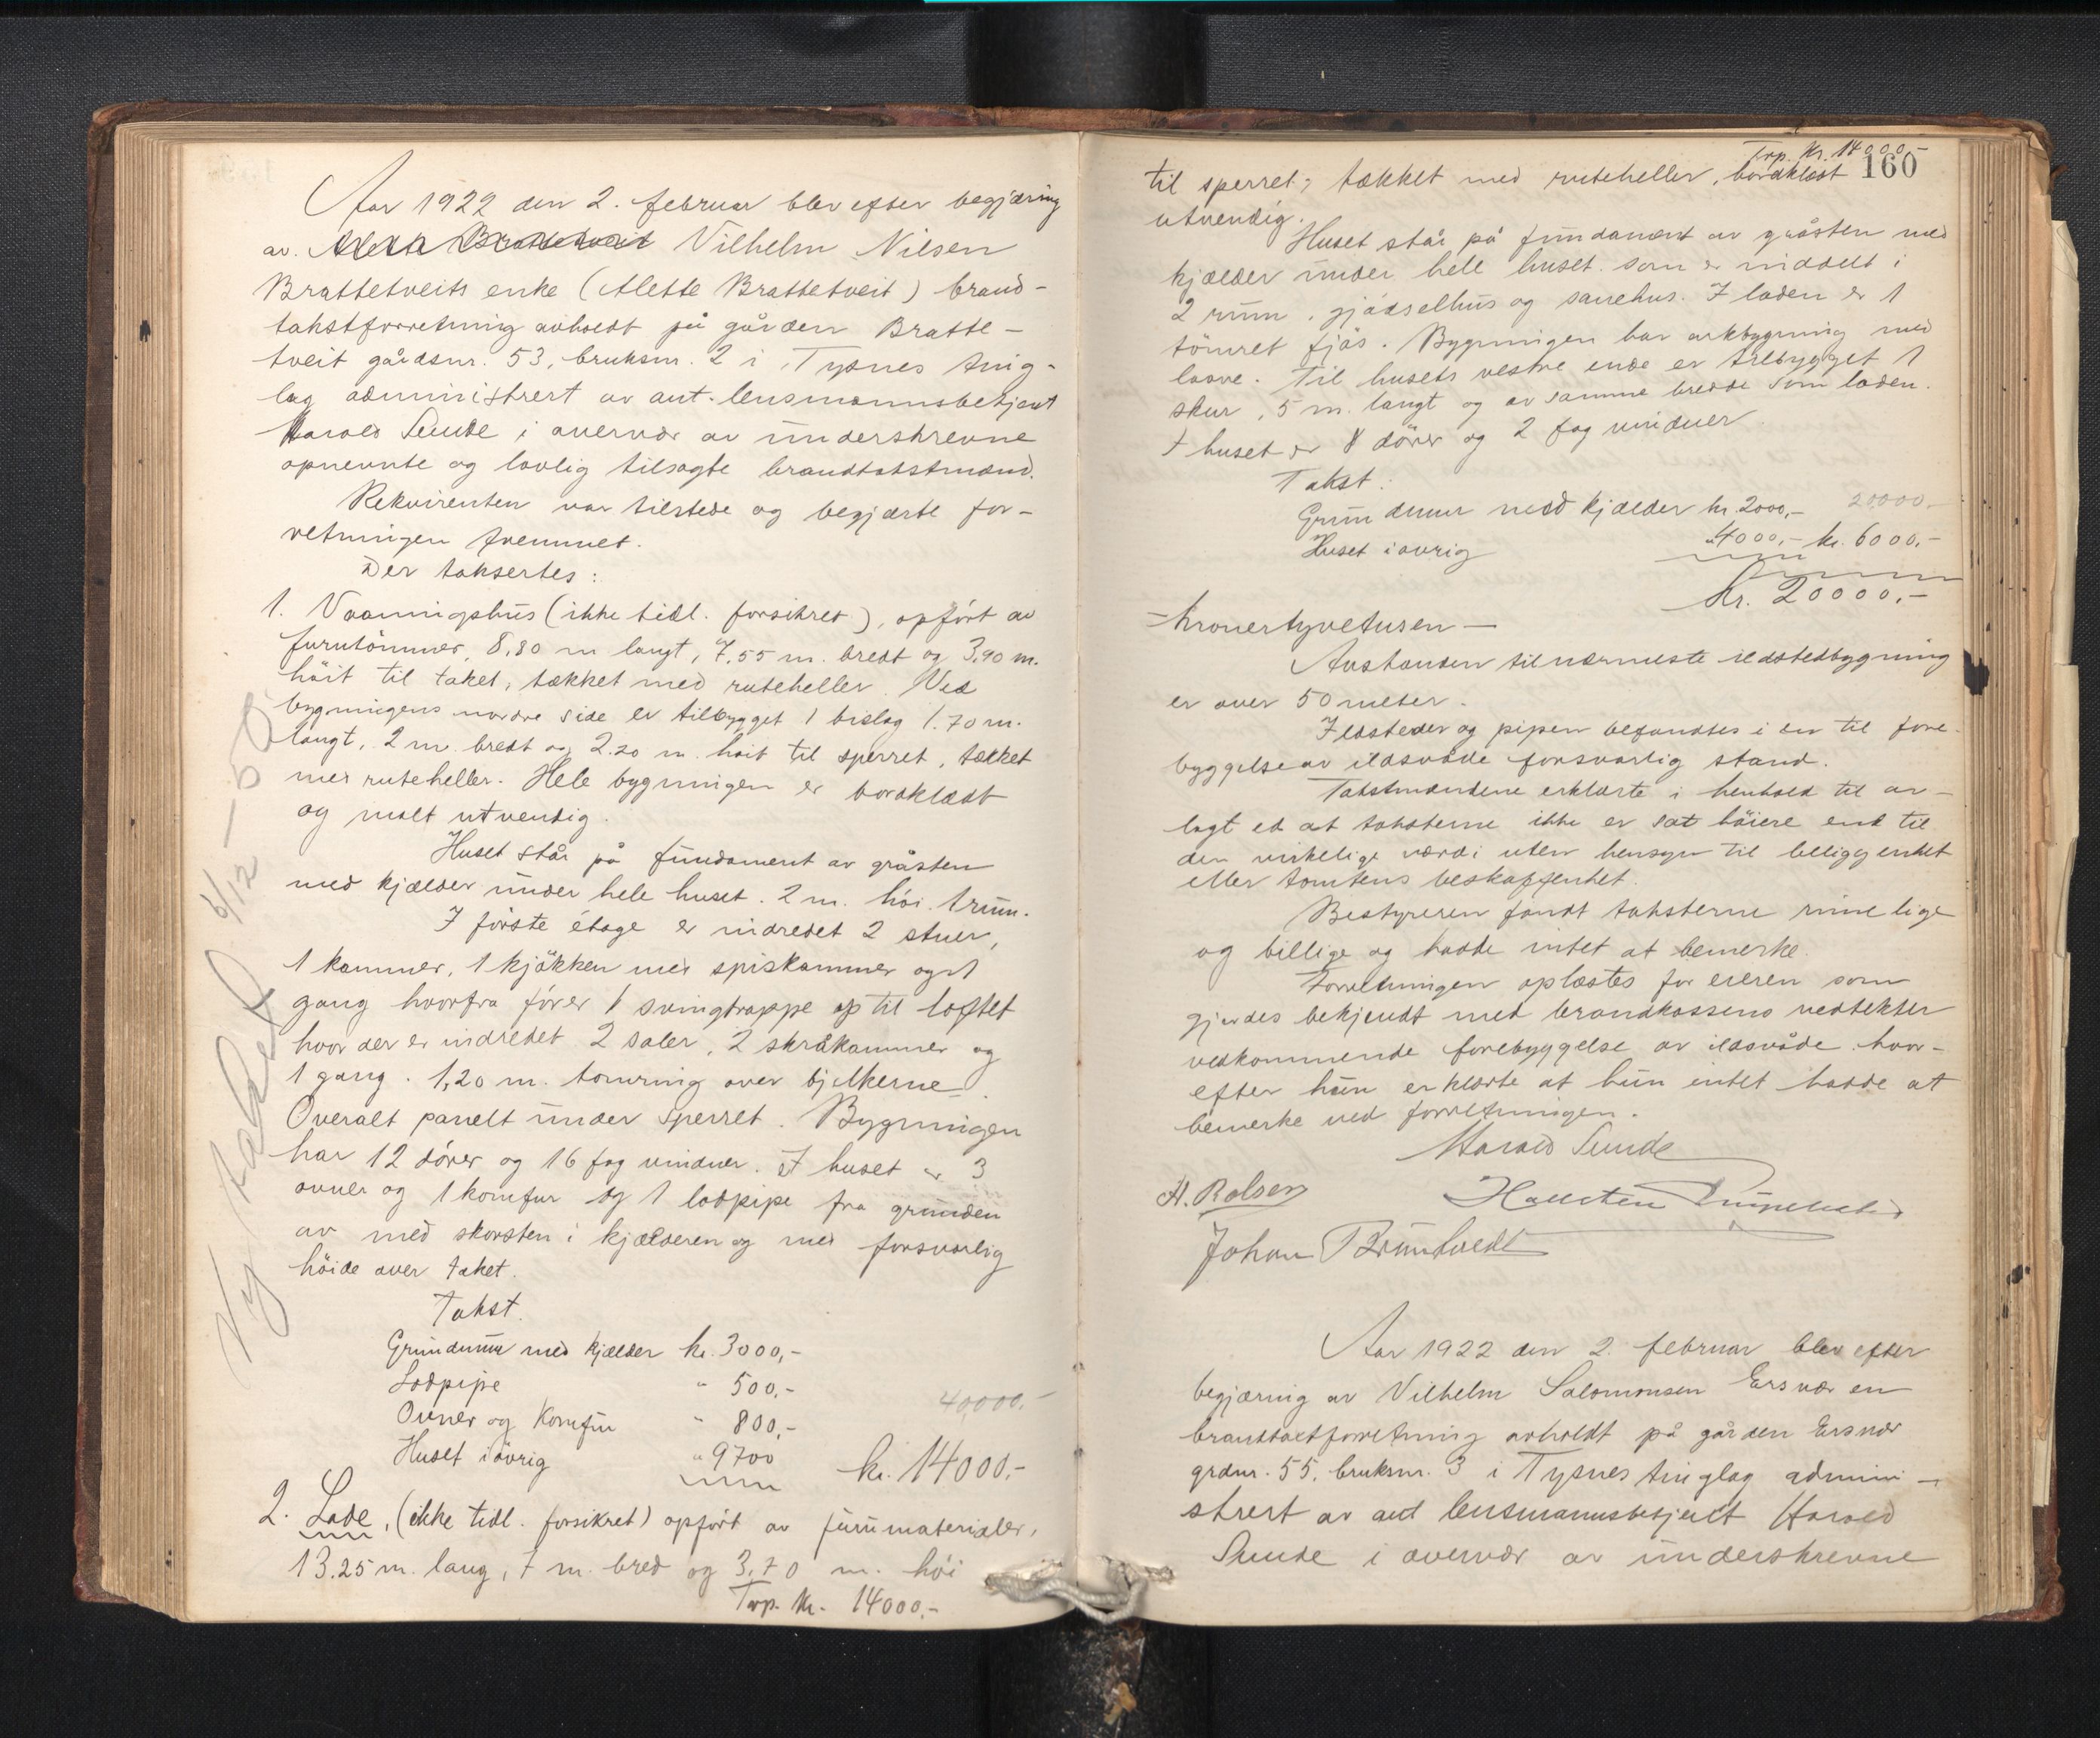 Aar 1922 den 2. februar blev efter begjæring
av. Vilhelm Nilsen
Brattetveits enke (Alette Brattetveit) brand-
takstforretning avholdt på gården Bratte-
tveit gårdsnr. 53, bruksnr. 2 i Tysnes ting-
lag administrert av aut. lensmannsbetjent
Harald Sunde i overvær av underskrevne
opnevnte og lovlig tilsagte brandtakstmænd.
Rekvirenten var tilstede og begjærte for-
retningen fremmet.
Der taksertes:
1. Vaaningshus (ikke tidl. forsikret), opført av
furutömmer, 8,80 m langt, 7,55 m. bredt og 3,90 m.
höit til taket, tækket med ruteheller. Ved
bygningens nordre side er tilbygget 1 bislag 1.70 m.
langt, 2 m. bredt og 2.20 m. höit til sperret, tækket
med ruteheller. Hele bygningen er bordklædt
og malt utvendig.
Huset står på fundament av gråsten
med kjælder under hele huset. 2 m. höi. 1 rum.
I förste étage er indredet 2 stuer,
1 kammer, 1 kjökken med spiskammer og 1
gang hvorfra förer 1 svingtrappe op til loftet
hvor der er indredet 2 saler, 2 skråkammer og
1 gang. 1,20 m. tömring over bjelkerne.
Overalt panelt under sperret. Bygningen
har 12 dörer og 16 fag vinduer. I huset er 3
ovner og 1 komfur og 1 lodpipe fra grunden
av med skorsten i kjælderen og med forsvarlig
höide over taket.
Takst.
Grundmur med kjælder kr. 3000,-
Lodpipe " 500,-
40,000,-
Ovner og Komfur " 800,-
Huset iövrig " 9700 kr. 14000,-
2. Lade, (ikke tidl. forsikret) opfört av furumaterialer,
13.25 m. lang, 7 m. bred og 3,70 m. höi
Trp. kr. 14000,-
Ny takst 6/12 - 50
Trp. Kr. 14000,-
160
til sperret, tækket med ruteheller, bordklædt
utvendig.
Huset står på fundament av gråsten med
kjælder under hele huset. som er inddelt i
2 rum. gjödselhus og sauehus. I laden er 1
tömret fjös. Bygningen har arkbygning med
laave. Til husets vestre ende er tilbygget 1
skur, 5 m. langt og av samme bredde som laden.
I huset er 8 dörer og 2 fag vinduer.
Takst:
Grundmur med kjælder kr. 2000,- 20,000,-
Huset iövrig " 4000,- kr. 6000,-
Kr. 20000,-
- Kronertyvetusen -
Avstanden til nærmeste ildstedbygning
er over 50 meter.
Ildsteder og pipen befandtes i en til fore-
byggelse av ildsvåde forsvarlig stand.
Takstmændene erklærte i henhold til av-
lagt ed at taksterne ikke er sat höiere end til
den virkelige værdi uten hensyn til beliggenhet
eller tomtens beskaffenhet.
Bestyreren fandt taksterne rimelige
og billige og hadde intet at bemerke.
Forretningen oplæstes for eieren som
gjordes bekjendt med brandkassens vedtekter
vedkommende forebyggelse av ildsvåde. hvor-
efter hun erklærte at hun intet hadde at
bemerke ved forretningen.
Harald Sunde
Johan
Aar 1922 den 2. februar blev efter
begjæring av Vilhelm Salomonsen Ersvær en
brandtakstforretning avholdt på gården Ersvær
grdnr. 55, bruksnr. 3 i Tysnes tinglag admini-
strert av aut lensmannsbetjent Harald
Sunde i overvær av underskrevne